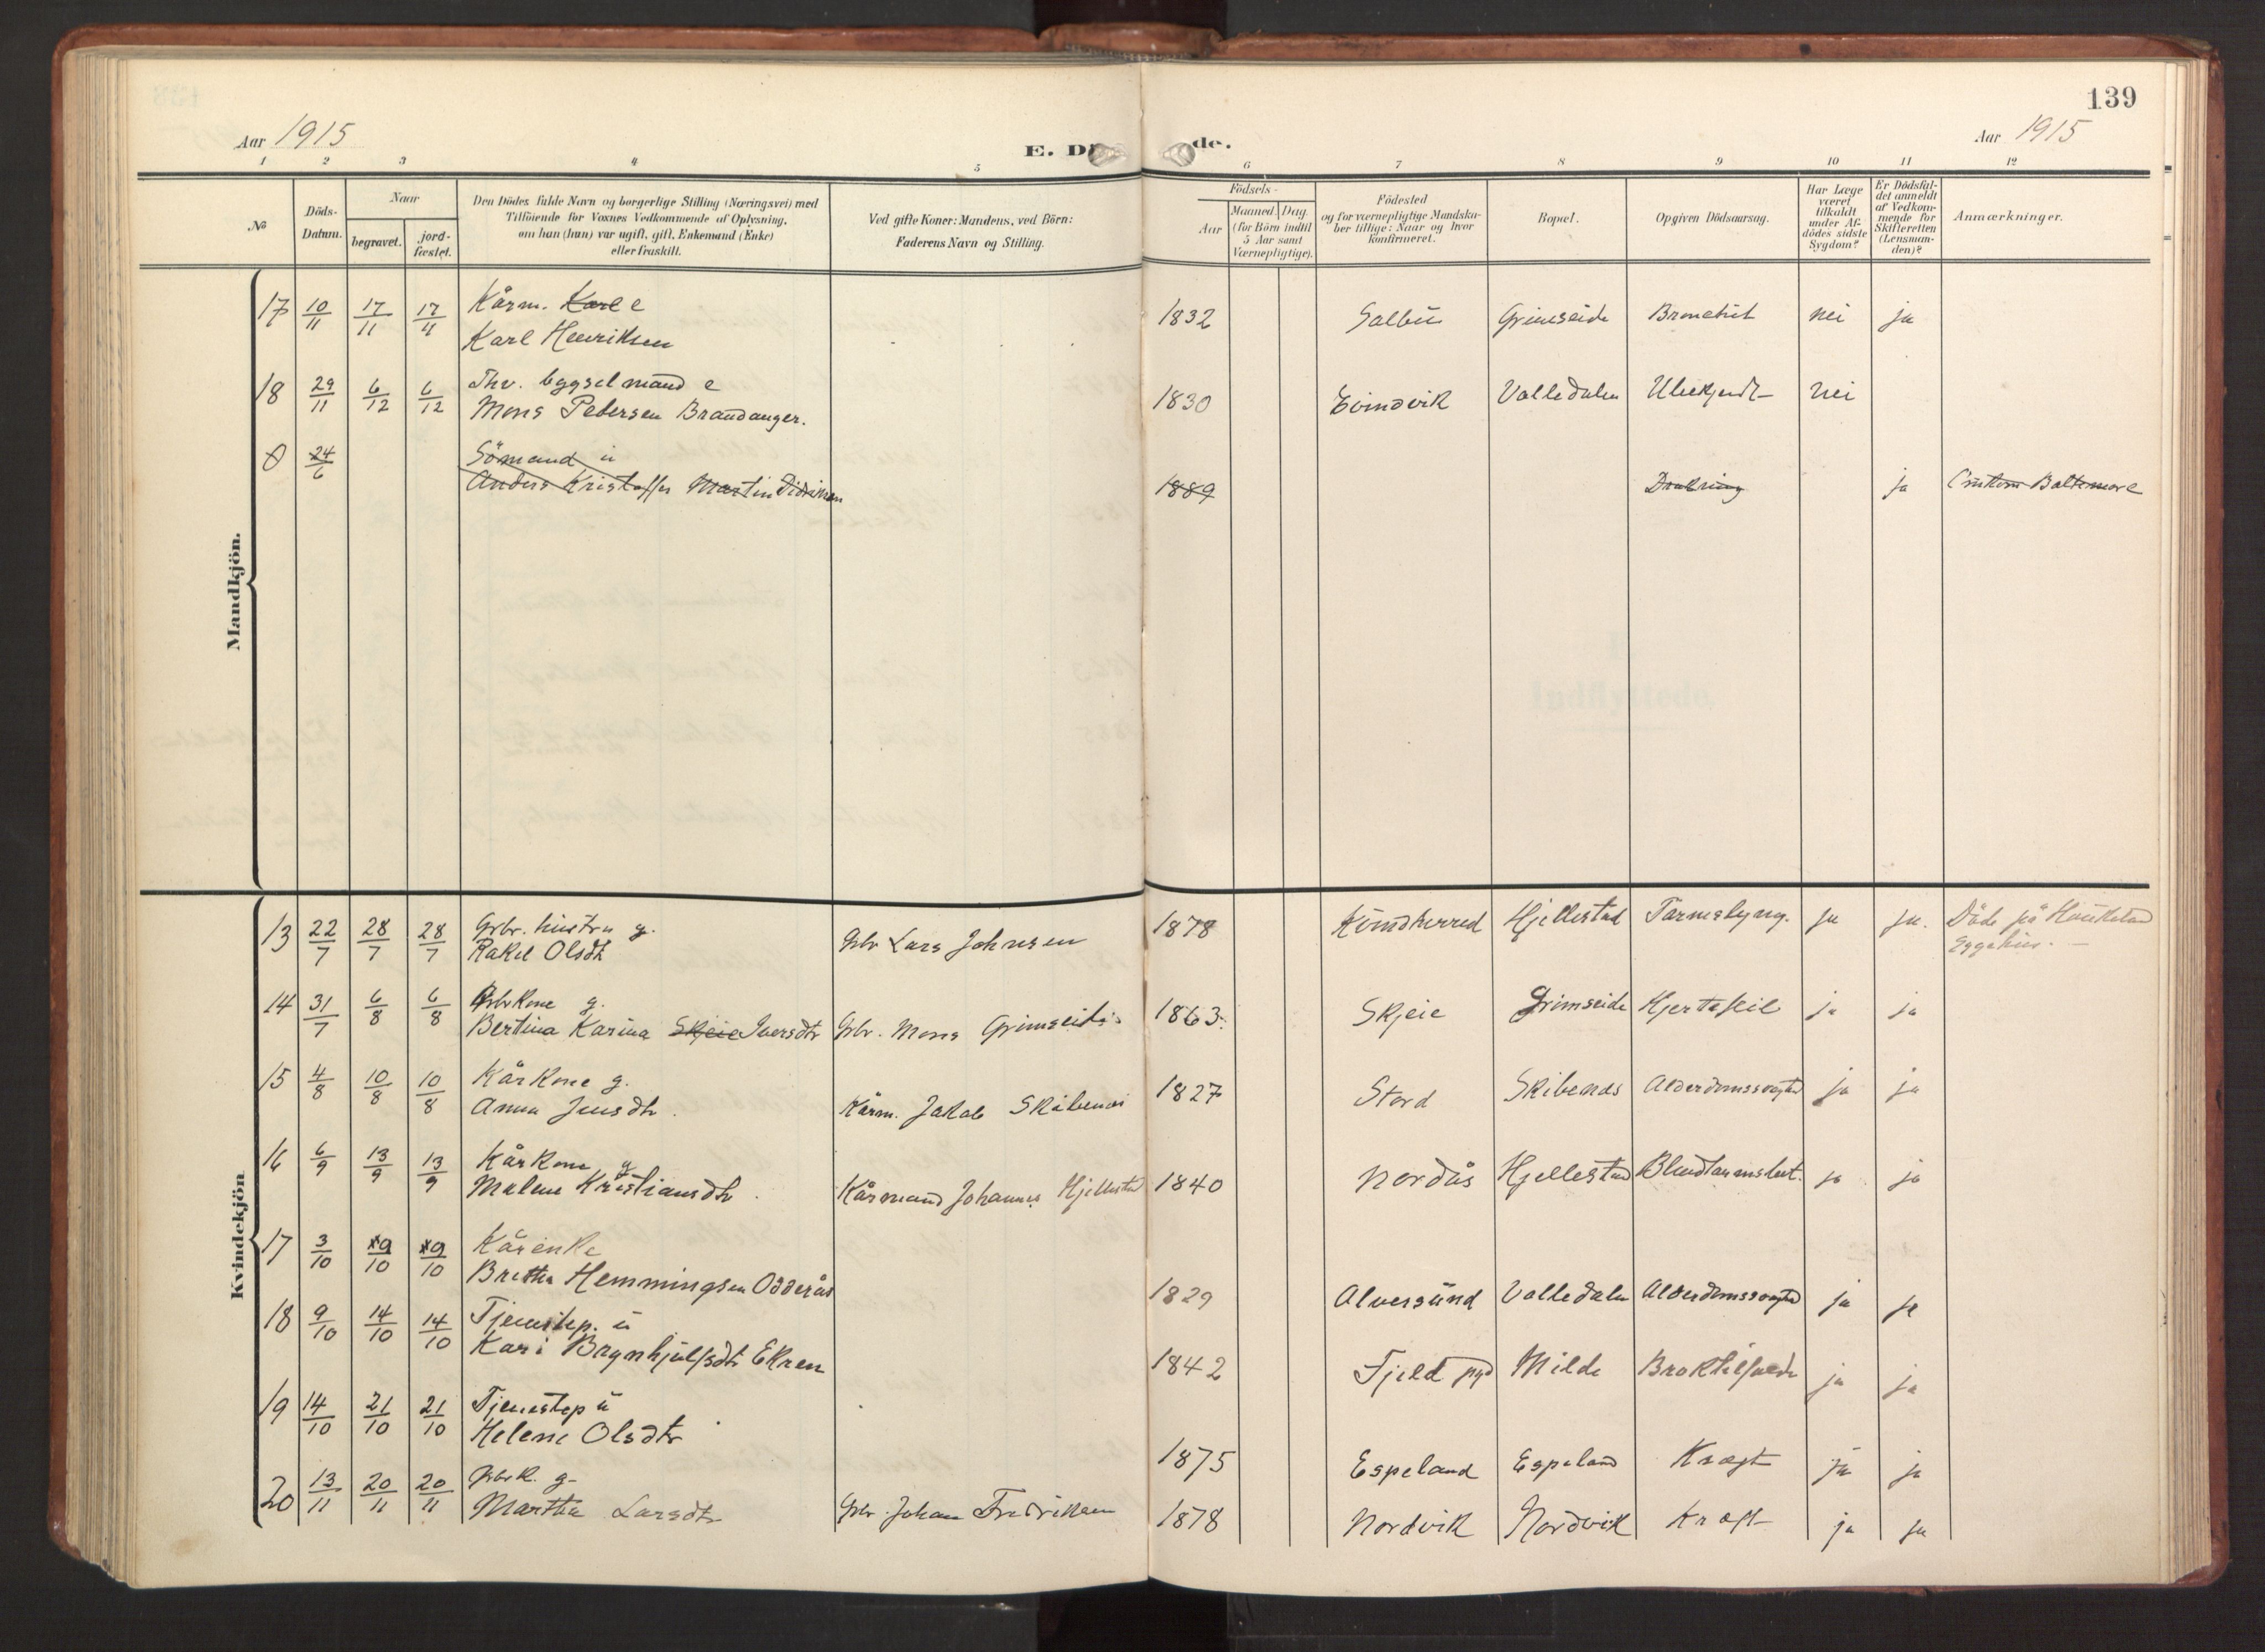 139
Aar 1915
E. Dö de.
Aar 1915
1 2 3 4 5 6 7 8 9 10 11 12
No
Döds-Datum.
Naar
begravet.
jord-fæstet.
Den Dödes fulde Navn og borgerlige Stilling (Næringsvei) med
Tilföiende for Voxnes Vedkommende af Oplysning,
om han (hun) var ugift, gift, Enkemand (Enke)
eller fraskilt.
Ved gifte Koner: Mandens, ved Börn:
Faderens Navn og Stilling.
Födsels-
Aar
Maaned. Dag.
(for Börn indtil
5 Aar samt
Værnepligtige).
Födested
og for værnepligtige Mandska-
ber tillige: Naar og hvor
konfirmeret.
Bopæl.
Opgiven Dödsaarsag.
Har Læge
været
tilkaldt
under Af-
dödes sidste
Sygdom?
Er Dödsfal-
det anmeldt
af Vedkom-
mende for
Skifteretten
(Lensman-
den)?
Anmærkninger.
Mandkjön.
17 10/11 17/11 17/4 Kårm. Karl e
Karl Henriksen 1832 Salbu Grimseide Bronchit nei ja
18 29/11 6/12 6/12 Thv. bygselmand e
Mons Petersen Brandanger. 1830 Evindvik Valledalen Ubekjendt nei
0 24/6 Sömand u
Anders Kristoffer Martin Didriksen 1889 Drukning ja Omkom Baltimore
Kvindekjön
13 22/7 28/7 28/7 Gbr. hustru g.
Rakel Olsdt Gbr Lars Johnsen 1878 Kvindherred Hjellestad Tarmslyng. ja ja. Döde på Haukeland
Sygehus.
14 31/7 6/8 6/8 Gbrkone g.
Bertina Karina Skjeie Iversdtr Gbr. Mons Grimseide 1863. Skjeie Grimseide Hjertefeil ja ja
15 4/8 10/8 10/8 Kårkone g.
Anna Jensdtr. Kårm. Jakob Skibenes 1827 Stord Skibenes Alderdomssvaghed ja ja
16 6/9 13/9 13/9 Kårkone g
Malene Kristiansdtr. Kårmand Johannes Hjellestad 1840 Nordås Hjellestad Blindtarmsbet. ja ja
17 3/10 9/10 9/10 Kårenke
Bretha Hemmingsen Odderås 1829 Alversund Valledalen Alderdomssvaghed ja ja
18 9/10 14/10 14/10 Tjenestep. u
Kari Brynhjulfsdtr Ekren 1842 Fjeld pgd Milde Broktilfælde ja ja
19 14/10 21/10 21/10 Tjenestep u
Helene Olsdtr 1875 Espeland Espeland Kræft ja ja
20 13/11 20/11 20/11 Gbrk. g.
Martha Larsdtr Gbr. Johan Fredriksen 1878 Nordvik Nordvik Kræft ja ja